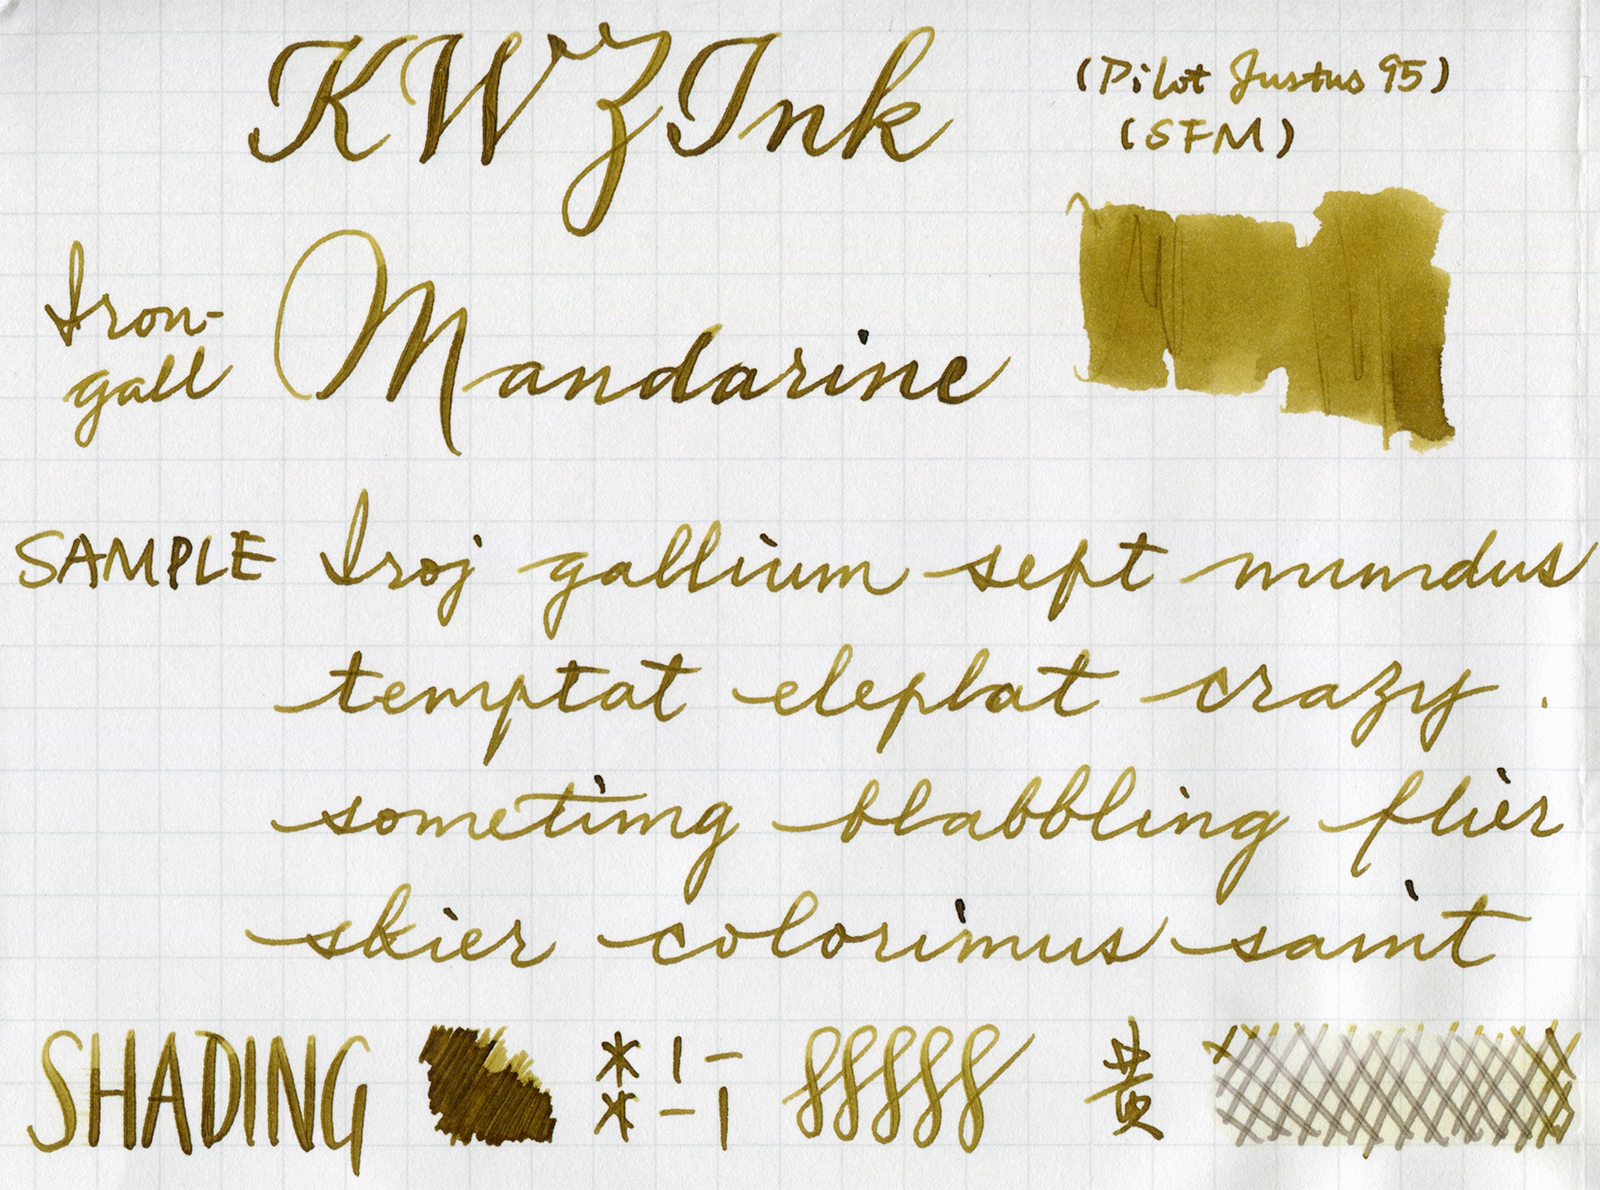 KWZ Ink
(Pilot Justus 95)
(SFM)
Iron-
gall
Mandarine
SAMPLE Iroj gallium sept mumdus
temptat elephat crazy .
sometimg blabbling flier
skier colorimus saimt
SHADING
黄